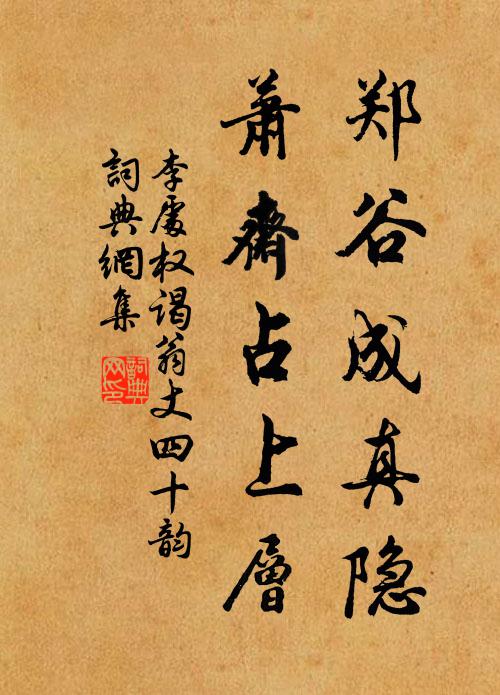 郑谷成真隐
萧斋占上层
李处权谒翁丈四十韵
词典網集
詞典網印